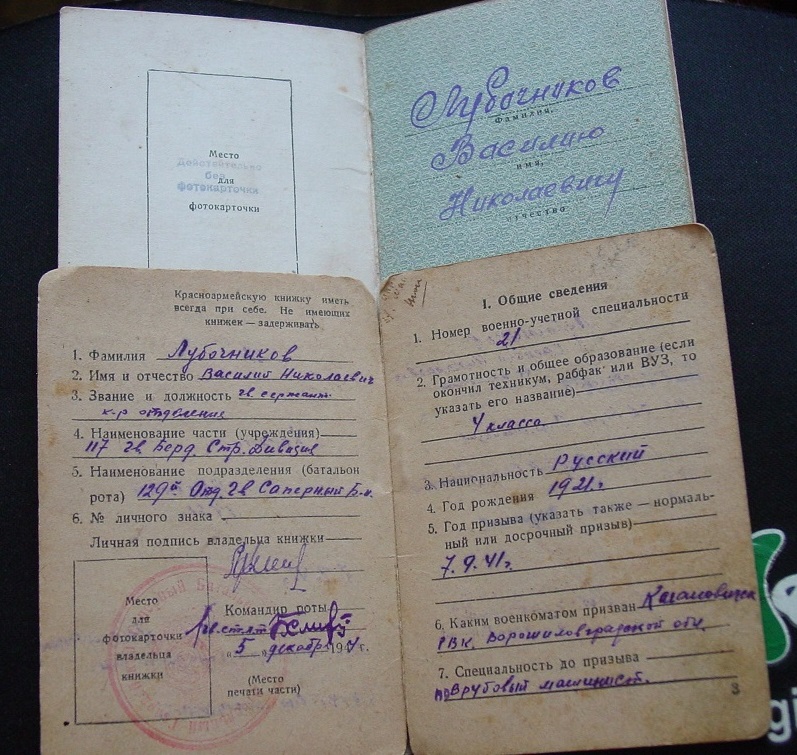 Место
для
фотокарточки
Действительно
без
фотокарточки
Лубочников
Фамилия,
Василию
имя,
Николаевичу
отчество
Красноармейскую книжку иметь
всегда при себе. Не имеющих
книжек — задерживать.
1. Фамилия Лубочников
2. Имя и отчество Василий Николаевич
3. Звание и должность гв. сержант
к-р отделения
4. Наименование части (учреждения)
117 гв. Берд. Стр. Дивизия
5. Наименование подразделения (батальон
рота) 129й Отд. Гв Саперный Б-н.
6. № личного знака
Личная подпись владельца книжки
Место
для
фотокарточки
владельца
книжки
Командир роты
гв.ст.л-т
„5" декабря 1944 г.
(Место
печати части)
1. Общие сведения
1. Номер военно-учетной специальности
21
2. Грамотность и общее образование (если
окончил техникум, рабфак или ВУЗ, то
указать его название)
4 класса.
3. Национальность русский
4. Год рождения 1921г.
5. Год призыва (указать также — нормаль-
ный или досрочный призыв)
7.9.41г.
6. Каким военкоматом призван Кагановичск
РВК, Ворошиловградской обл.
7. Специальность до призыва
врубовый машинист.
3